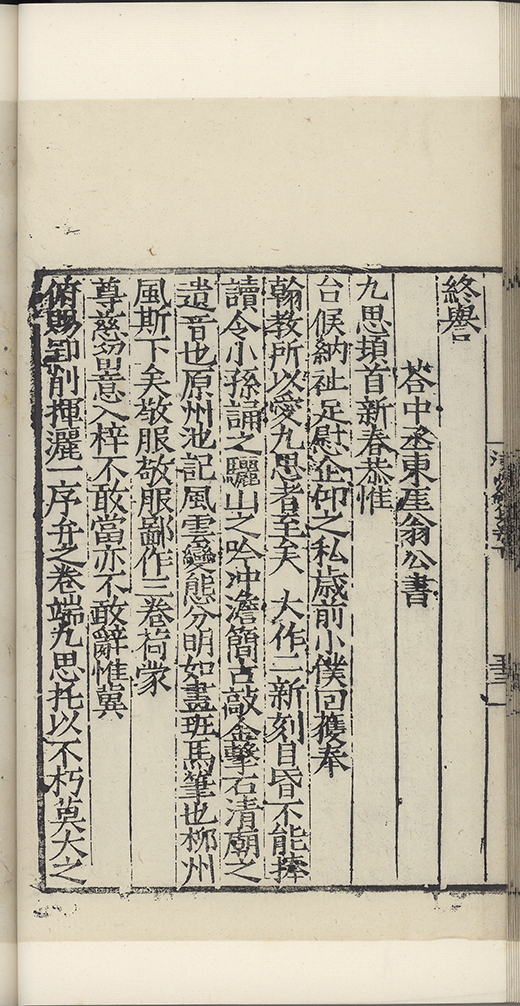 終譽
荅中丞東厓翁公書
九思頓首新春恭惟
台候納祉足慰企仰之私歳前小僕回獲奉
翰教所以愛九思者至矣 大作二新刻目昏不能捧
讀令小孫誦之驪山之吟冲澹簡古敲金擊石清廟之
遺音也原州池記風雲變態分明如畫班馬筆也柳州
風斯下矣敬服敬服鄙作三卷荷蒙
尊慈留意入梓不敢當亦不敢辭惟冀
俯賜卸削揮灑一序弁之卷端九思托以不朽莫大之